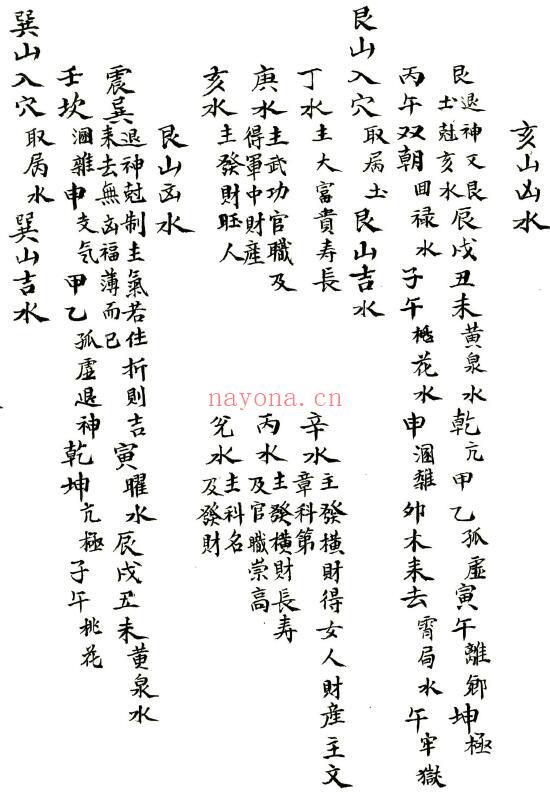 亥山凶水
艮退神又艮土尅亥水辰戌丑未黄泉水乾亢甲乙孤虛寅午離鄉坤極
丙午双朝回禄水子午桃花水申溷雜卯木来去霄局水午牢獄
艮山入穴取局土艮山吉水
丁水主大富貴壽長
辛水主發橫財得女人財產主文章科第
庚水主武功官職及得軍中財產
丙水主發橫財長寿及官職崇高
亥水主發財旺人
兌水主科名及發財
艮山凶水
震巽退神尅制主氣若住折則吉来去無凶福薄而已寅曜水辰戌丑未黄泉水
壬坎溷雜申支气甲乙孤虛退神乾坤亢極子午桃花
巽山入穴取局水巽山吉水
nayona.cn